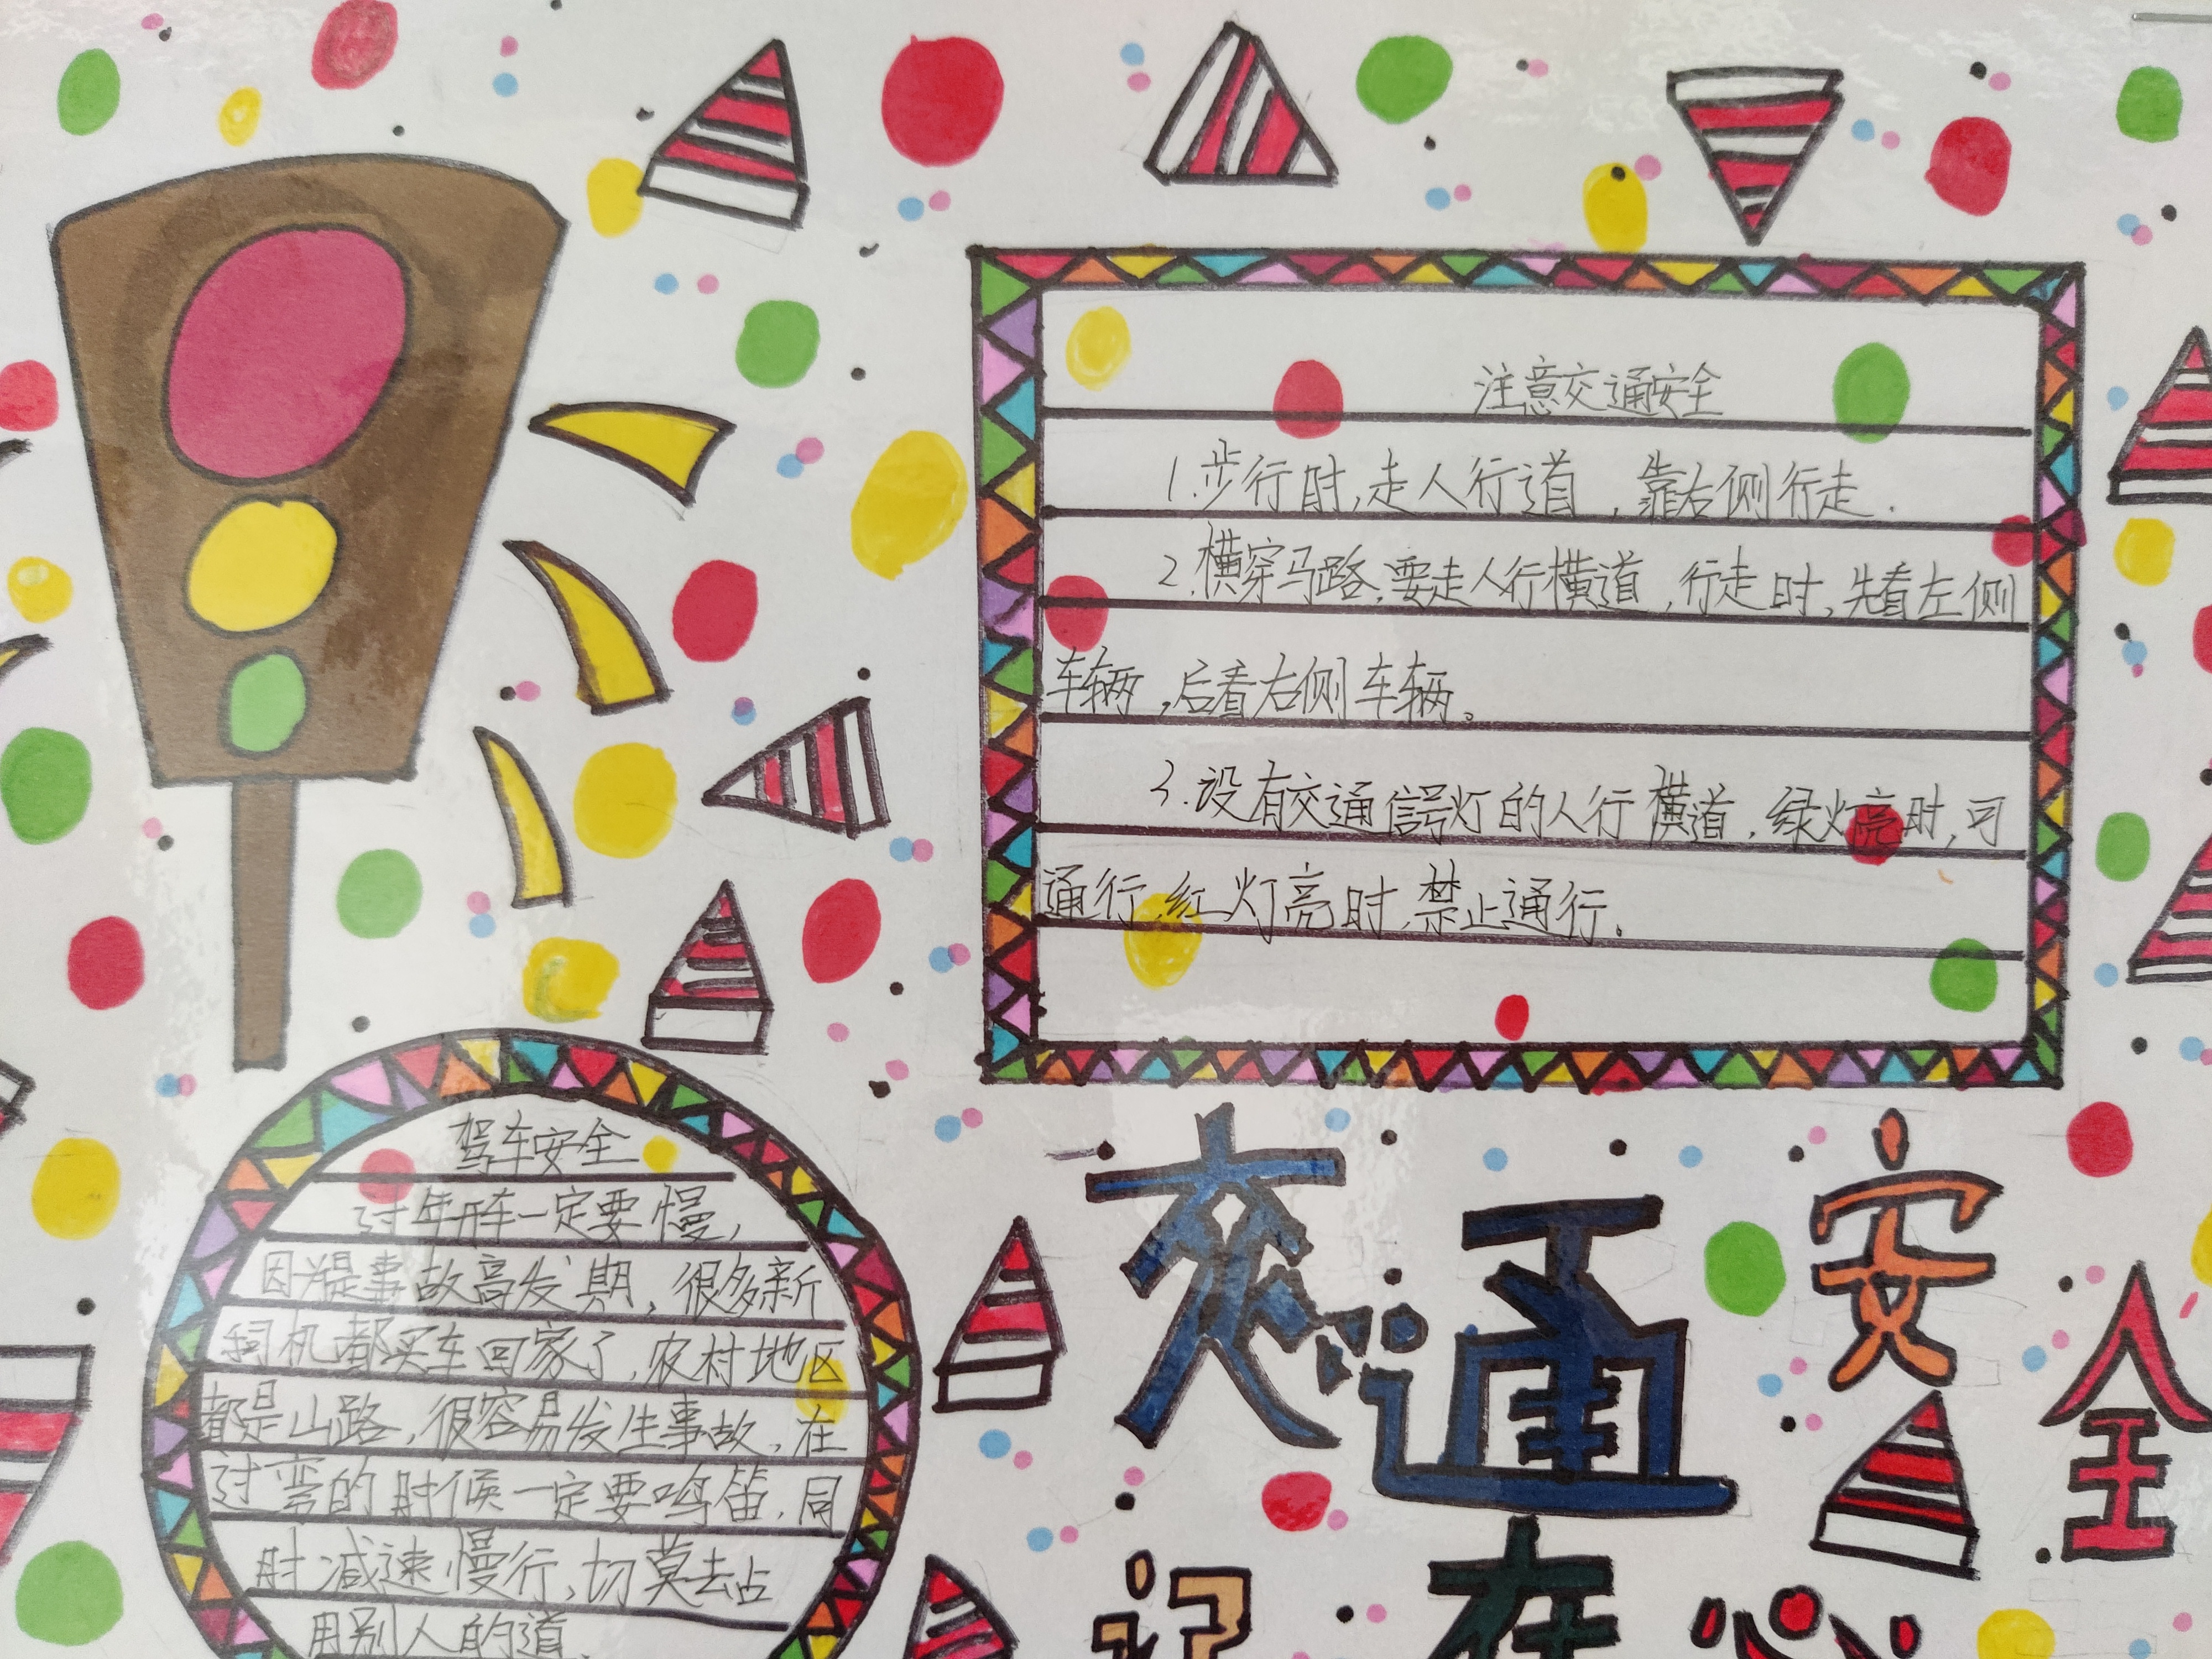 注意交通安全
1.步行时,走人行道,靠右侧行走.
2.横穿马路,要走人行横道,行走时,先看左侧
车辆,后看右侧车辆。
3.设有交通信号灯的人行横道,绿灯亮时,可
通行,红灯亮时,禁止通行。
驾车安全
过年开车一定要慢,
因为是事故高发期,很多新
司机都买车回家了,农村地区
都是山路,很容易发生事故,在
过弯的时候一定要鸣笛,同
时减速慢行,切莫去占
用别人的道.
交通安全
记在心